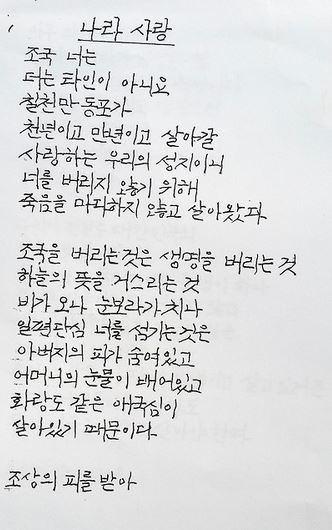 나라 사랑
조국 너는
더는 타인이 아니요
칠천만 동포가
천년이고 만년이고 살아갈
사랑하는 우리의 성지이니
너를 버리지 않기 위해
죽음을 마다하지 않고 살아왔다
조국을 버리는것은 생명을 버리는 것
하늘의 뜻을 거스리는 것
비가 오나 눈보라가 치나
일편단심 너를 섬기는것은
아버지의 피가 숨여있고
어머니의 눈물이 배어있고
화랑도 같은 애국심이
살아있기 때문이다
조상의 피를 받아